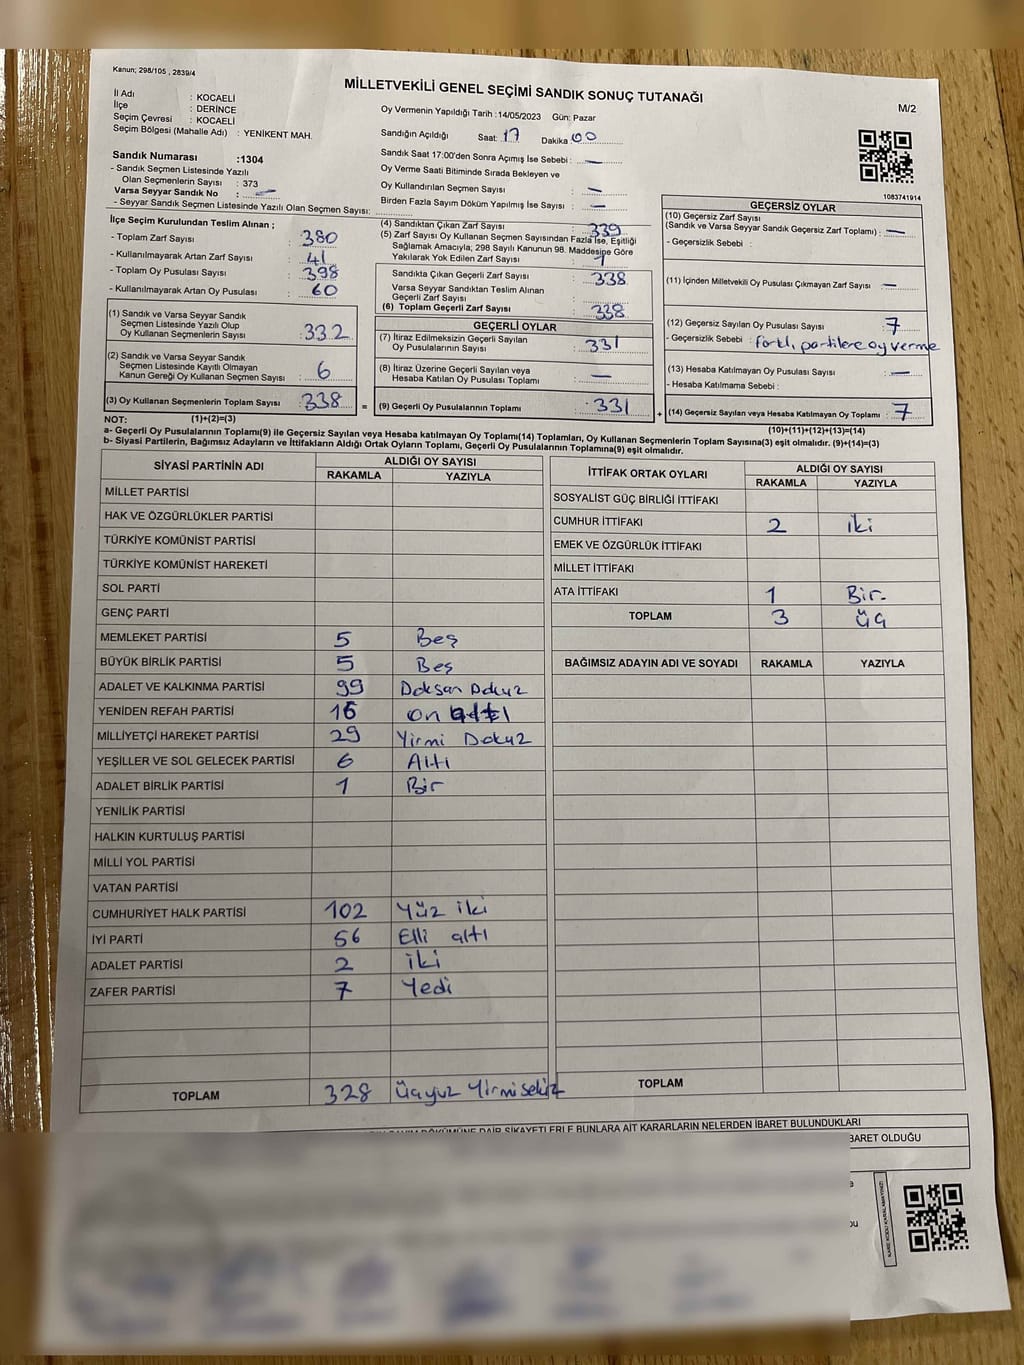 Kanun; 298/105 , 2839/4
MİLLETVEKİLİ GENEL SEÇİMİ SANDIK SONUÇ TUTANAĞI
M/2
İl Adı : KOCAELİ
İlçe : DERİNCE
Seçim Çevresi : KOCAELİ
Seçim Bölgesi (Mahalle Adı) : YENİKENT MAH.
Oy Vermenin Yapıldığı Tarih :14/05/2023 Gün: Pazar
Sandığın Açıldığı Saat: 17 Dakika 00
Sandık Saat 17:00'den Sonra Açımış İse Sebebi : —
Oy Verme Saati Bitiminde Sırada Bekleyen ve
Oy Kullandırılan Seçmen Sayısı : —
Birden Fazla Sayım Döküm Yapılmış İse Sayısı : —
Sandık Numarası :1304
- Sandık Seçmen Listesinde Yazılı
Olan Seçmenlerin Sayısı : 373
Varsa Seyyar Sandık No : —
- Seyyar Sandık Seçmen Listesinde Yazılı Olan Seçmen Sayısı:
1083741914
İlçe Seçim Kurulundan Teslim Alınan ;
- Toplam Zarf Sayısı : 380
- Kullanılmayarak Artan Zarf Sayısı : 41
- Toplam Oy Pusulası Sayısı : 398
- Kullanılmayarak Artan Oy Pusulası : 60
(1) Sandık ve Varsa Seyyar Sandık
Seçmen Listesinde Yazılı Olup
Oy Kullanan Seçmenlerin Sayısı : 332
(2) Sandık ve Varsa Seyyar Sandık
Seçmen Listesinde Kayıtlı Olmayan
Kanun Gereği Oy Kullanan Seçmen Sayısı : 6
(3) Oy Kullanan Seçmenlerin Toplam Sayısı : 338
NOT: (1)+(2)=(3)
(4) Sandıktan Çıkan Zarf Sayısı : 339
(5) Zarf Sayısı Oy Kullanan Seçmen Sayısından Fazla İse, Eşitliği
Sağlamak Amacıyla; 298 Sayılı Kanunun 98. Maddesine Göre
Yakılarak Yok Edilen Zarf Sayısı : 1
Sandıkta Çıkan Geçerli Zarf Sayısı : 338
Varsa Seyyar Sandıktan Teslim Alınan
Geçerli Zarf Sayısı :
(6) Toplam Geçerli Zarf Sayısı : 338
GEÇERLİ OYLAR
(7) İtiraz Edilmeksizin Geçerli Sayılan
Oy Pusulalarının Sayısı : 331
(8) İtiraz Üzerine Geçerli Sayılan veya
Hesaba Katılan Oy Pusulası Toplamı : —
= (9) Geçerli Oy Pusulalarının Toplamı : 331
GEÇERSİZ OYLAR
(10) Geçersiz Zarf Sayısı
(Sandık ve Varsa Seyyar Sandık Geçersiz Zarf Toplamı) : —
- Geçersizlik Sebebi :
(11) İçinden Milletvekili Oy Pusulası Çıkmayan Zarf Sayısı : —
(12) Geçersiz Sayılan Oy Pusulası Sayısı : 7
- Geçersizlik Sebebi : farklı partilere oy verme
(13) Hesaba Katılmayan Oy Pusulası Sayısı : —
- Hesaba Katılmama Sebebi :
+ (14) Geçersiz Sayılan veya Hesaba Katılmayan Oy Toplamı : 7
(10)+(11)+(12)+(13)=(14)
a- Geçerli Oy Pusulalarının Toplamı(9) ile Geçersiz Sayılan veya Hesaba katılmayan Oy Toplamı(14) Toplamları, Oy Kullanan Seçmenlerin Toplam Sayısına(3) eşit olmalıdır. (9)+(14)=(3)
b- Siyasi Partilerin, Bağımsız Adayların ve İttifakların Aldığı Ortak Oyların Toplamı, Geçerli Oy Pusulalarının Toplamına(9) eşit olmalıdır.
SİYASİ PARTİNİN ADI ALDIĞI OY SAYISI
RAKAMLA YAZIYLA
MİLLET PARTİSİ
HAK VE ÖZGÜRLÜKLER PARTİSİ
TÜRKİYE KOMÜNİST PARTİSİ
TÜRKİYE KOMÜNİST HAREKETİ
SOL PARTİ
GENÇ PARTİ
MEMLEKET PARTİSİ 5 Beş
BÜYÜK BİRLİK PARTİSİ 5 Beş
ADALET VE KALKINMA PARTİSİ 99 Doksan Dokuz
YENİDEN REFAH PARTİSİ 16 on altı
MİLLİYETÇİ HAREKET PARTİSİ 29 Yirmi Dokuz
YEŞİLLER VE SOL GELECEK PARTİSİ 6 Altı
ADALET BİRLİK PARTİSİ 1 Bir
YENİLİK PARTİSİ
HALKIN KURTULUŞ PARTİSİ
MİLLİ YOL PARTİSİ
VATAN PARTİSİ
CUMHURİYET HALK PARTİSİ 102 Yüz iki
İYİ PARTİ 56 Elli altı
ADALET PARTİSİ 2 iki
ZAFER PARTİSİ 7 Yedi
TOPLAM 328 üçyüz Yirmisekiz
İTTİFAK ORTAK OYLARI ALDIĞI OY SAYISI
RAKAMLA YAZIYLA
SOSYALİST GÜÇ BİRLİĞİ İTTİFAKI
CUMHUR İTTİFAKI 2 iki
EMEK VE ÖZGÜRLÜK İTTİFAKI
MİLLET İTTİFAKI
ATA İTTİFAKI 1 Bir
TOPLAM 3 üç
BAĞIMSIZ ADAYIN ADI VE SOYADI RAKAMLA YAZIYLA
TOPLAM
DÖKÜMÜNE DAİR ŞİKAYETLERLE BUNLARA AİT KARARLARIN NELERDEN İBARET BULUNDUKLARI
BARET OLDUĞU
KARE KODU KARALAMAYINIZ!